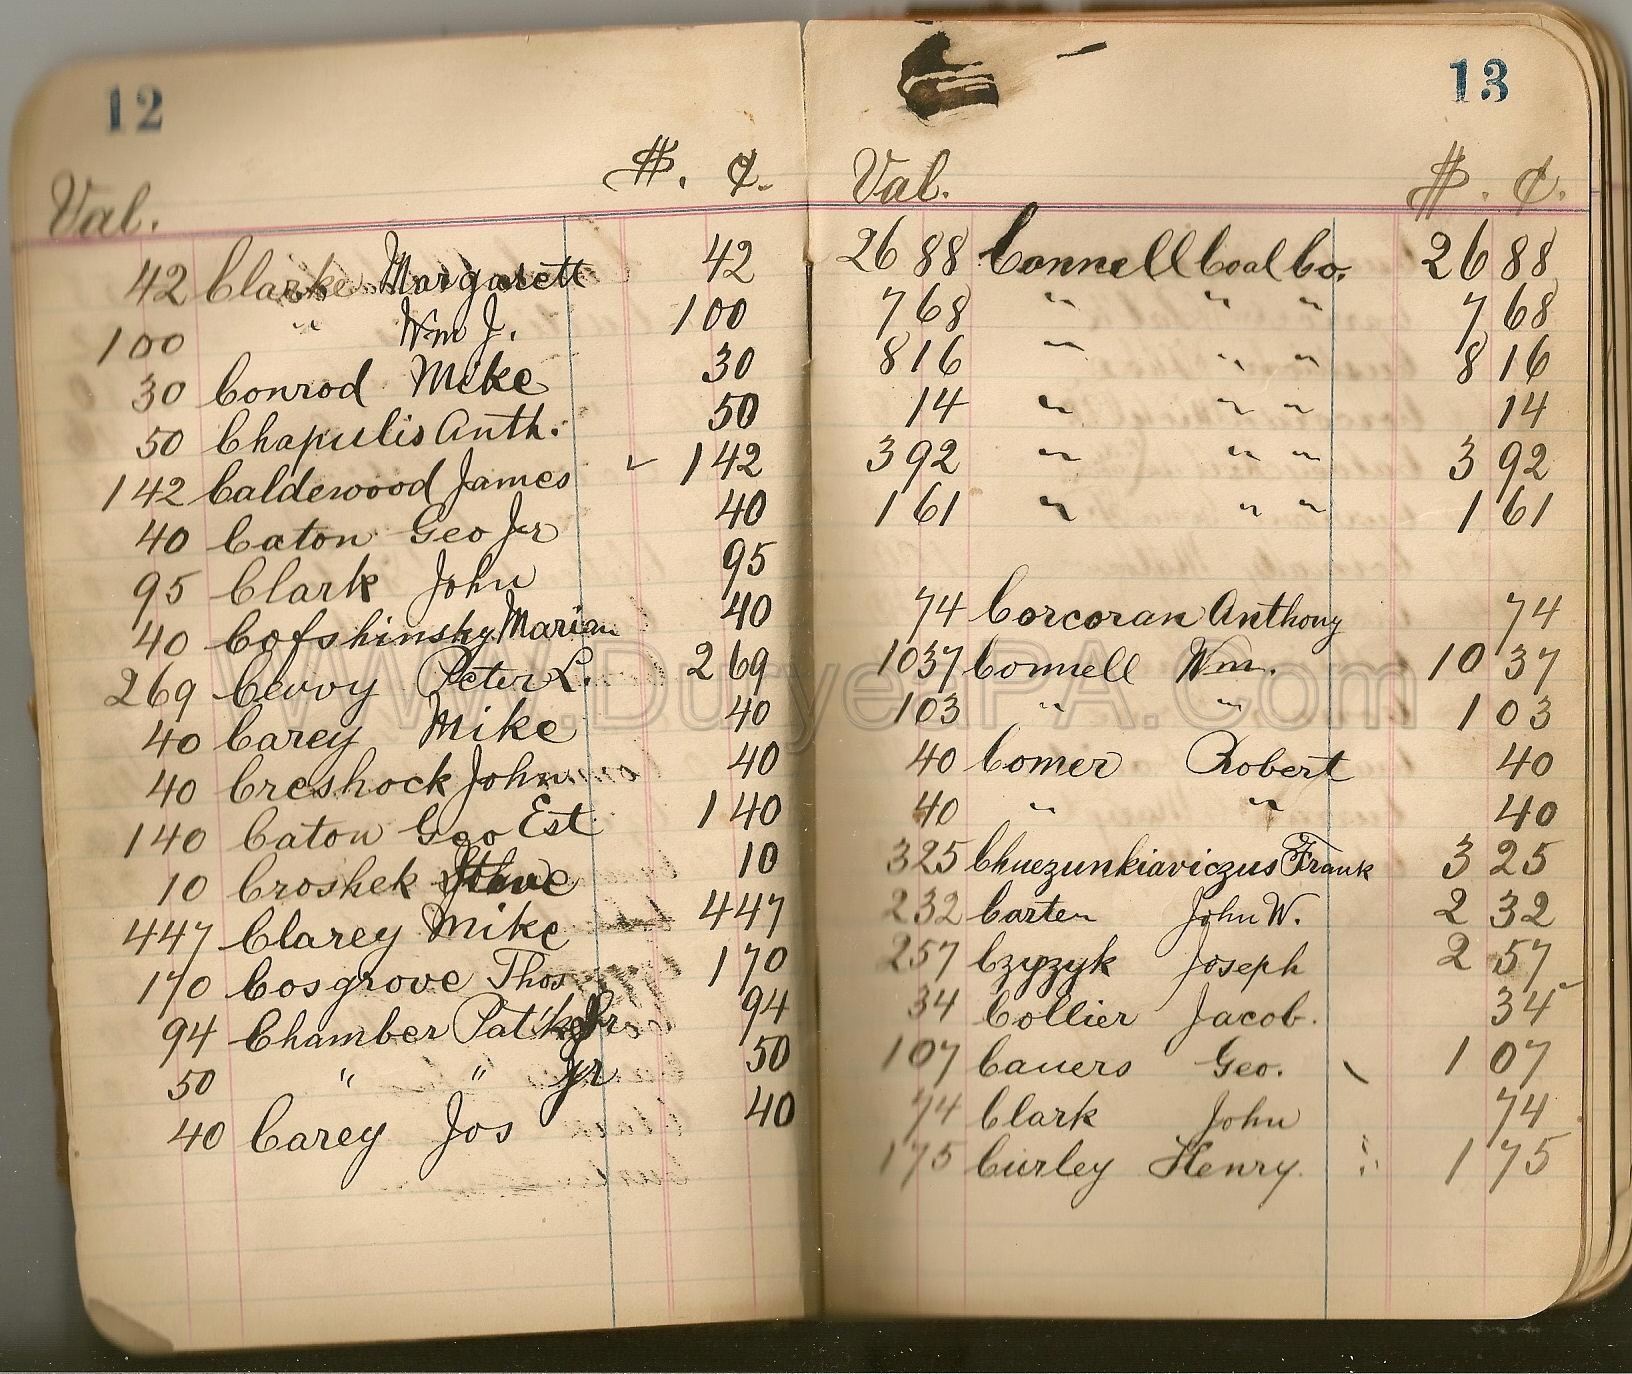 12
Val. $. ¢.
42 Clarke Margarett 42
100 " Wm J. 100
30 Conrod Mike 30
50 Chapulis Anth. 50
142 Caldewood James ✓ 142
40 Caton Geo Jr 40
95 Clark John 95
40 Cofshinsky Marian 40
269 Peter L. 269
40 Carey Mike 40
40 Creshock John 40
140 Caton Geo Est 140
10 Croshek Steve 10
447 Clarey Mike 447
170 Cosgrove Thos 170
94 Chamber Pat'k Sr 94
50 " " Jr 50
40 Carey Jos 40
13
Val. $. ¢.
2688 Connell Coal Co. 2688
768 " " " 768
816 " " " 816
14 " " " 14
392 " " " 392
161 " " " 161
74 Corcoran Anthony 74
1037 Connell Wm. 1037
103 " " 103
40 Comer Robert 40
40 " " 40
325 Chuezunkiaviczus Frank 325
232 Carten John W. 232
257 Czyzyk Joseph 257
34 Collier Jacob. 34
107 Cauers Geo. 107
74 Clark John 74
175 Curley Henry. 175
WWW.DuryeaPA.Com